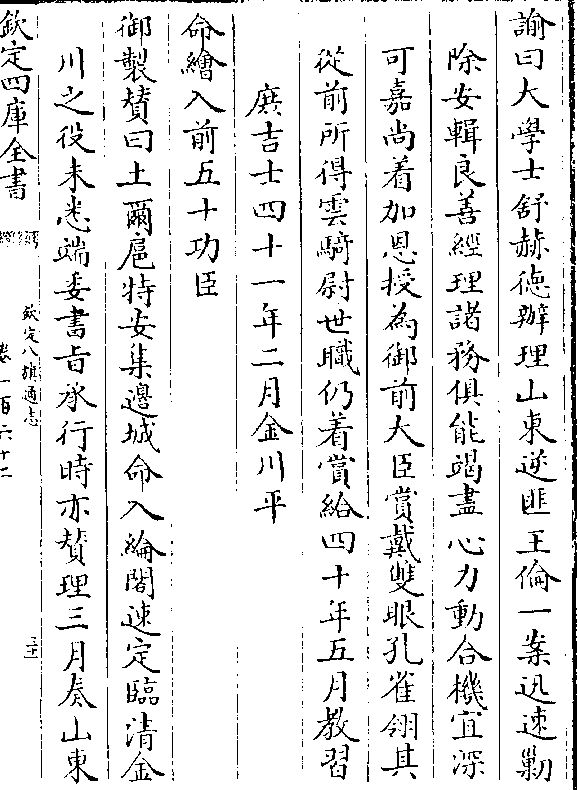 諭曰大學士舒赫德辦理山東逆匪王倫一案迅速勦
除安輯良善經理諸務俱能竭盡心力動合機宜深
可嘉尚着加恩授為御前大臣賞戴雙眼孔雀翎其
從前所得雲騎尉世職仍着賞給四十年五月教習
庶吉士四十一年二月金川平
命繪入前五十功臣
御製贊曰土爾扈特安集邊城命入綸閣速定臨清金
川之役未悉端委書旨承行時亦贊理三月奏山東
欽定四庫全書
欽定八旗通志
卷一百六十二